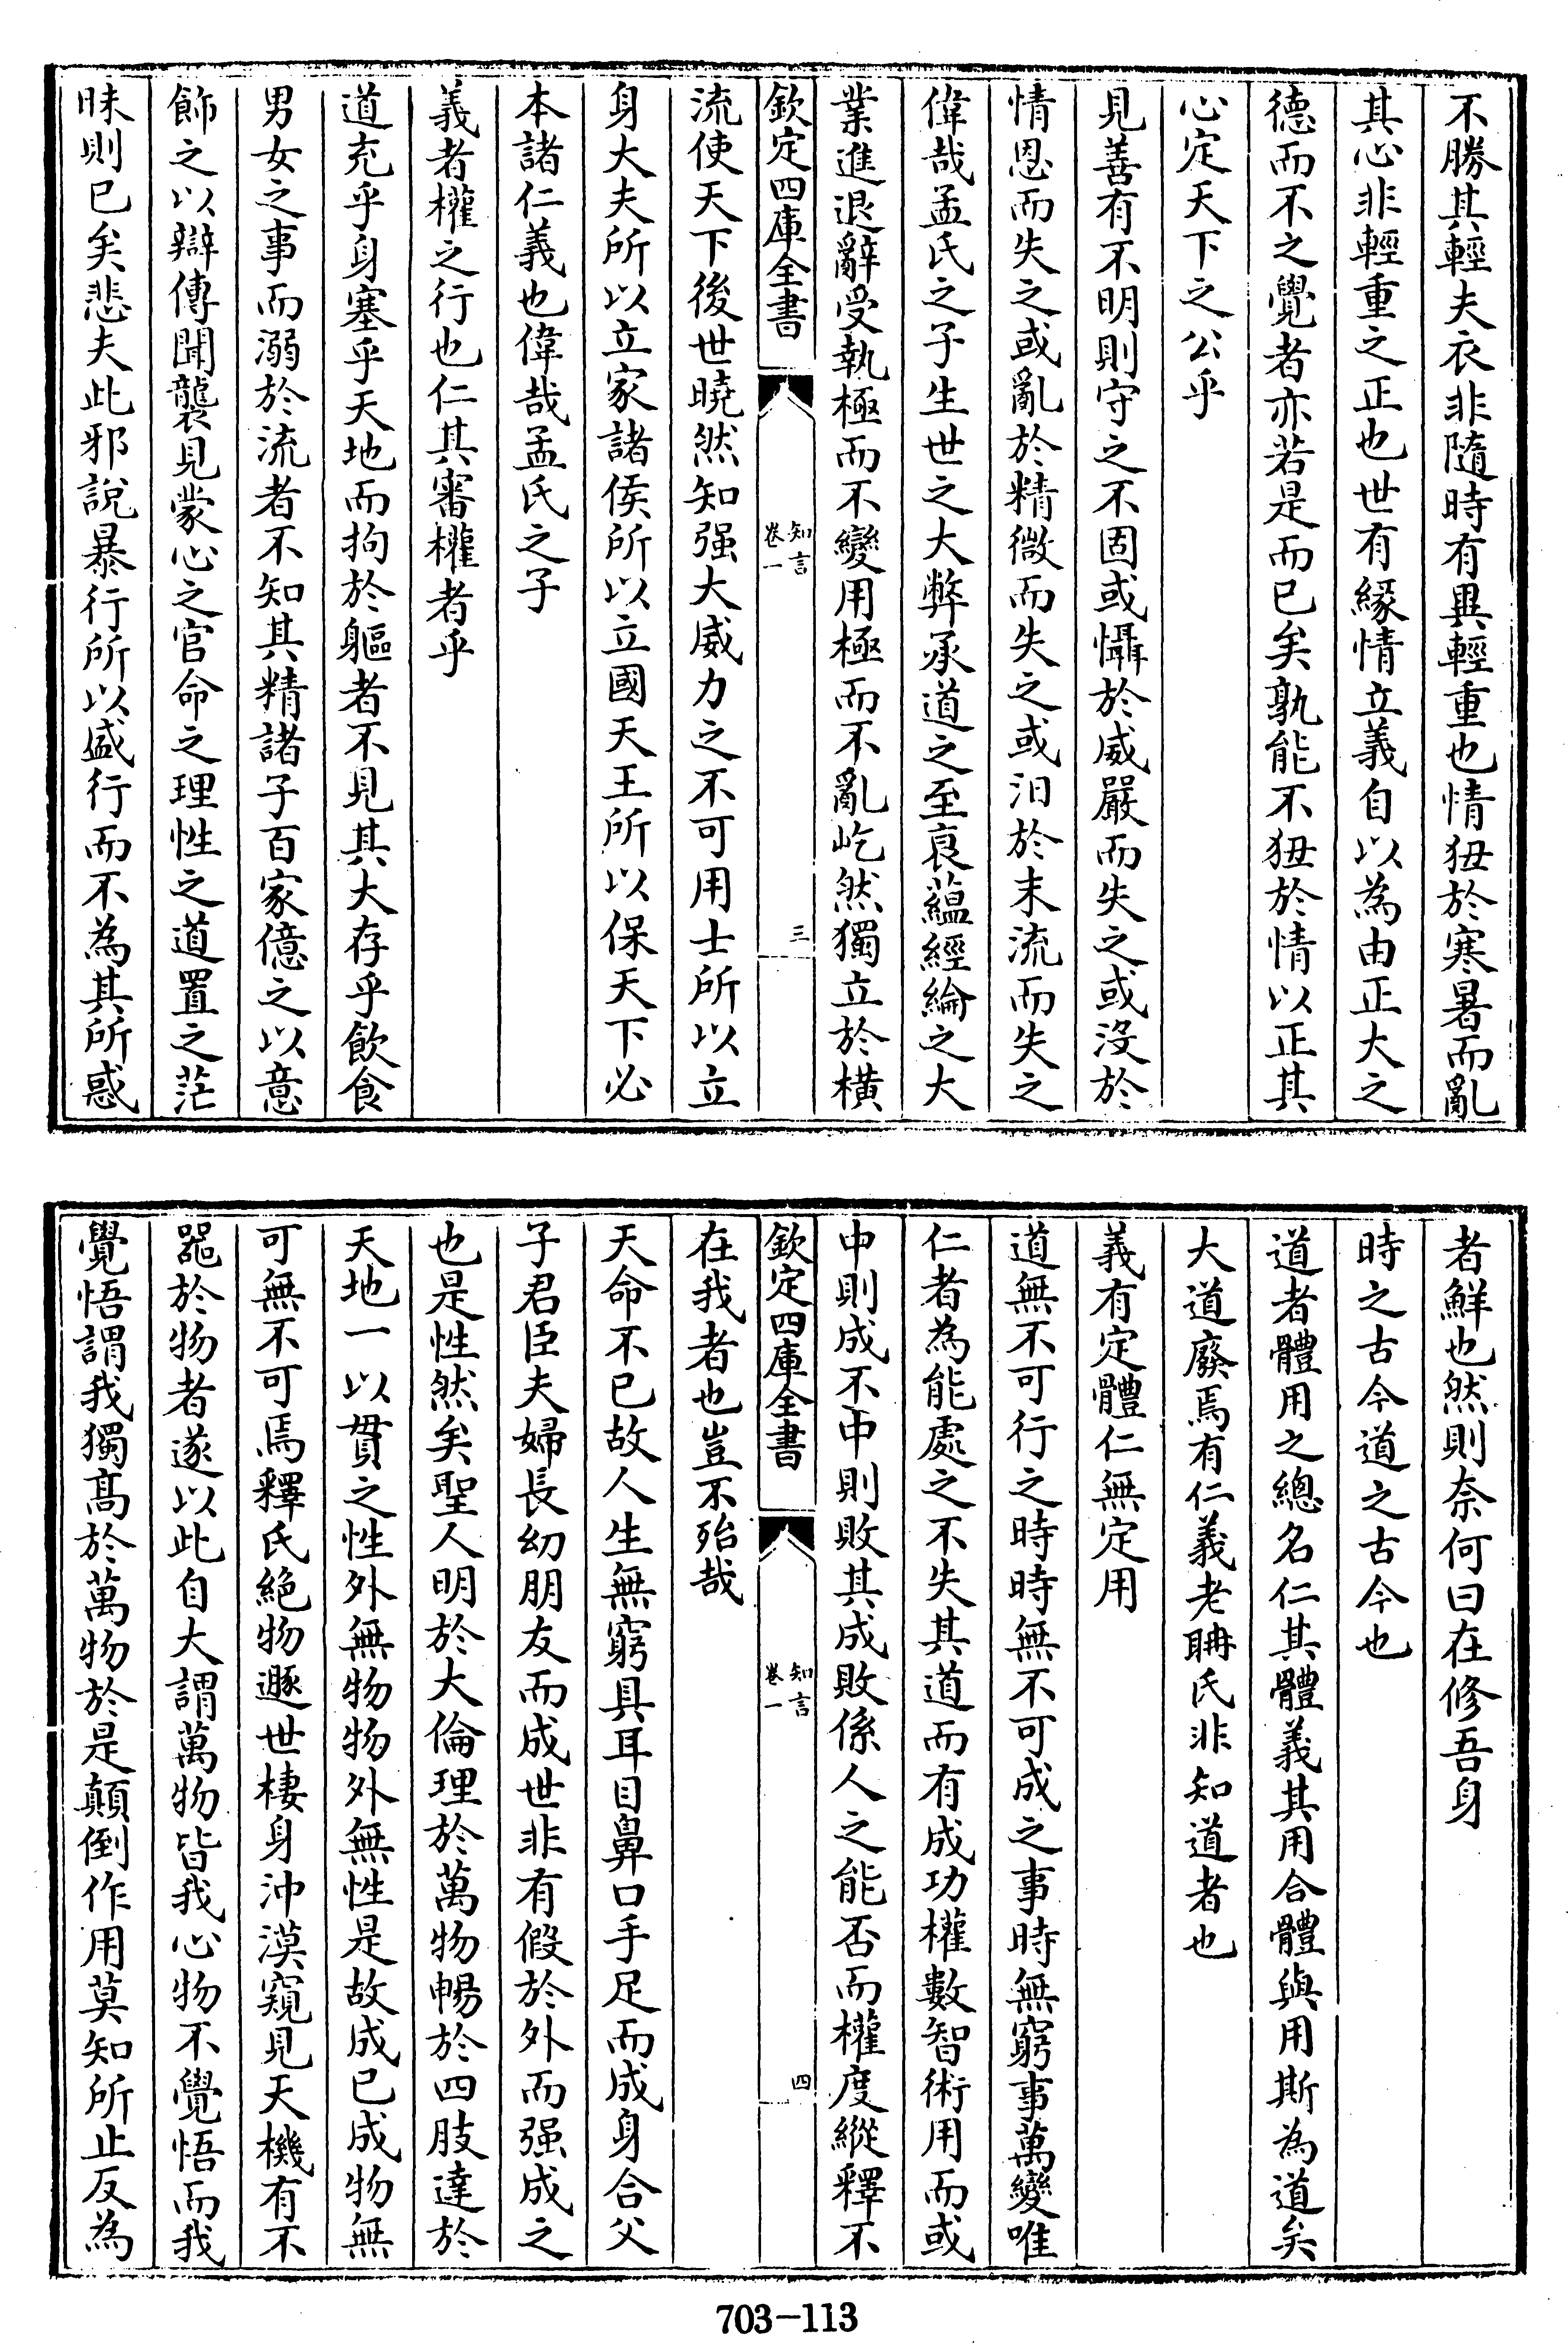 不勝其輕夫衣非隨時有異輕重也情狃於寒暑而亂
其心非輕重之正也世有緣情立義自以為由正大之
德而不之覺者亦若是而已矣孰能不狃於情以正其
心定天下之公乎
見善有不明則守之不固或懾於威嚴而失之或沒於
情恩而失之或亂於精微而失之或汨於末流而失之
偉哉孟氏之子生世之大弊承道之至衰蘊經綸之大
業進退辭受執極而不變用極而不亂屹然獨立於橫
欽定四庫全書
知言
卷一
三
流使天下後世曉然知强大威力之不可用士所以立
身大夫所以立家諸侯所以立國天王所以保天下必
本諸仁義也偉哉孟氏之子
義者權之行也仁其審權者乎
道充乎身塞乎天地而拘於軀者不見其大存乎飲食
男女之事而溺於流者不知其精諸子百家億之以意
飾之以辯傳聞襲見蒙心之官命之理性之道置之茫
昧則已矣悲夫此邪說暴行所以盛行而不為其所惑
者鮮也然則奈何曰在修吾身
時之古今道之古今也
道者體用之總名仁其體義其用合體與用斯為道矣
大道廢焉有仁義老聃氏非知道者也
義有定體仁無定用
道無不可行之時時無不可成之事時無窮事萬變唯
仁者為能處之不失其道而有成功權數智術用而或
中則成不中則敗其成敗係人之能否而權度縱釋不
欽定四庫全書
知言
卷一
四
在我者也豈不殆哉
天命不已故人生無窮具耳目鼻口手足而成身合父
子君臣夫婦長幼朋友而成世非有假於外而强成之
也是性然矣聖人明於大倫理於萬物暢於四肢達於
天地一以貫之性外無物物外無性是故成已成物無
可無不可焉釋氏絶物遯世棲身沖漠窺見天機有不
器於物者遂以此自大謂萬物皆我心物不覺悟而我
覺悟謂我獨高於萬物於是顛倒作用莫知所止反為
703-113